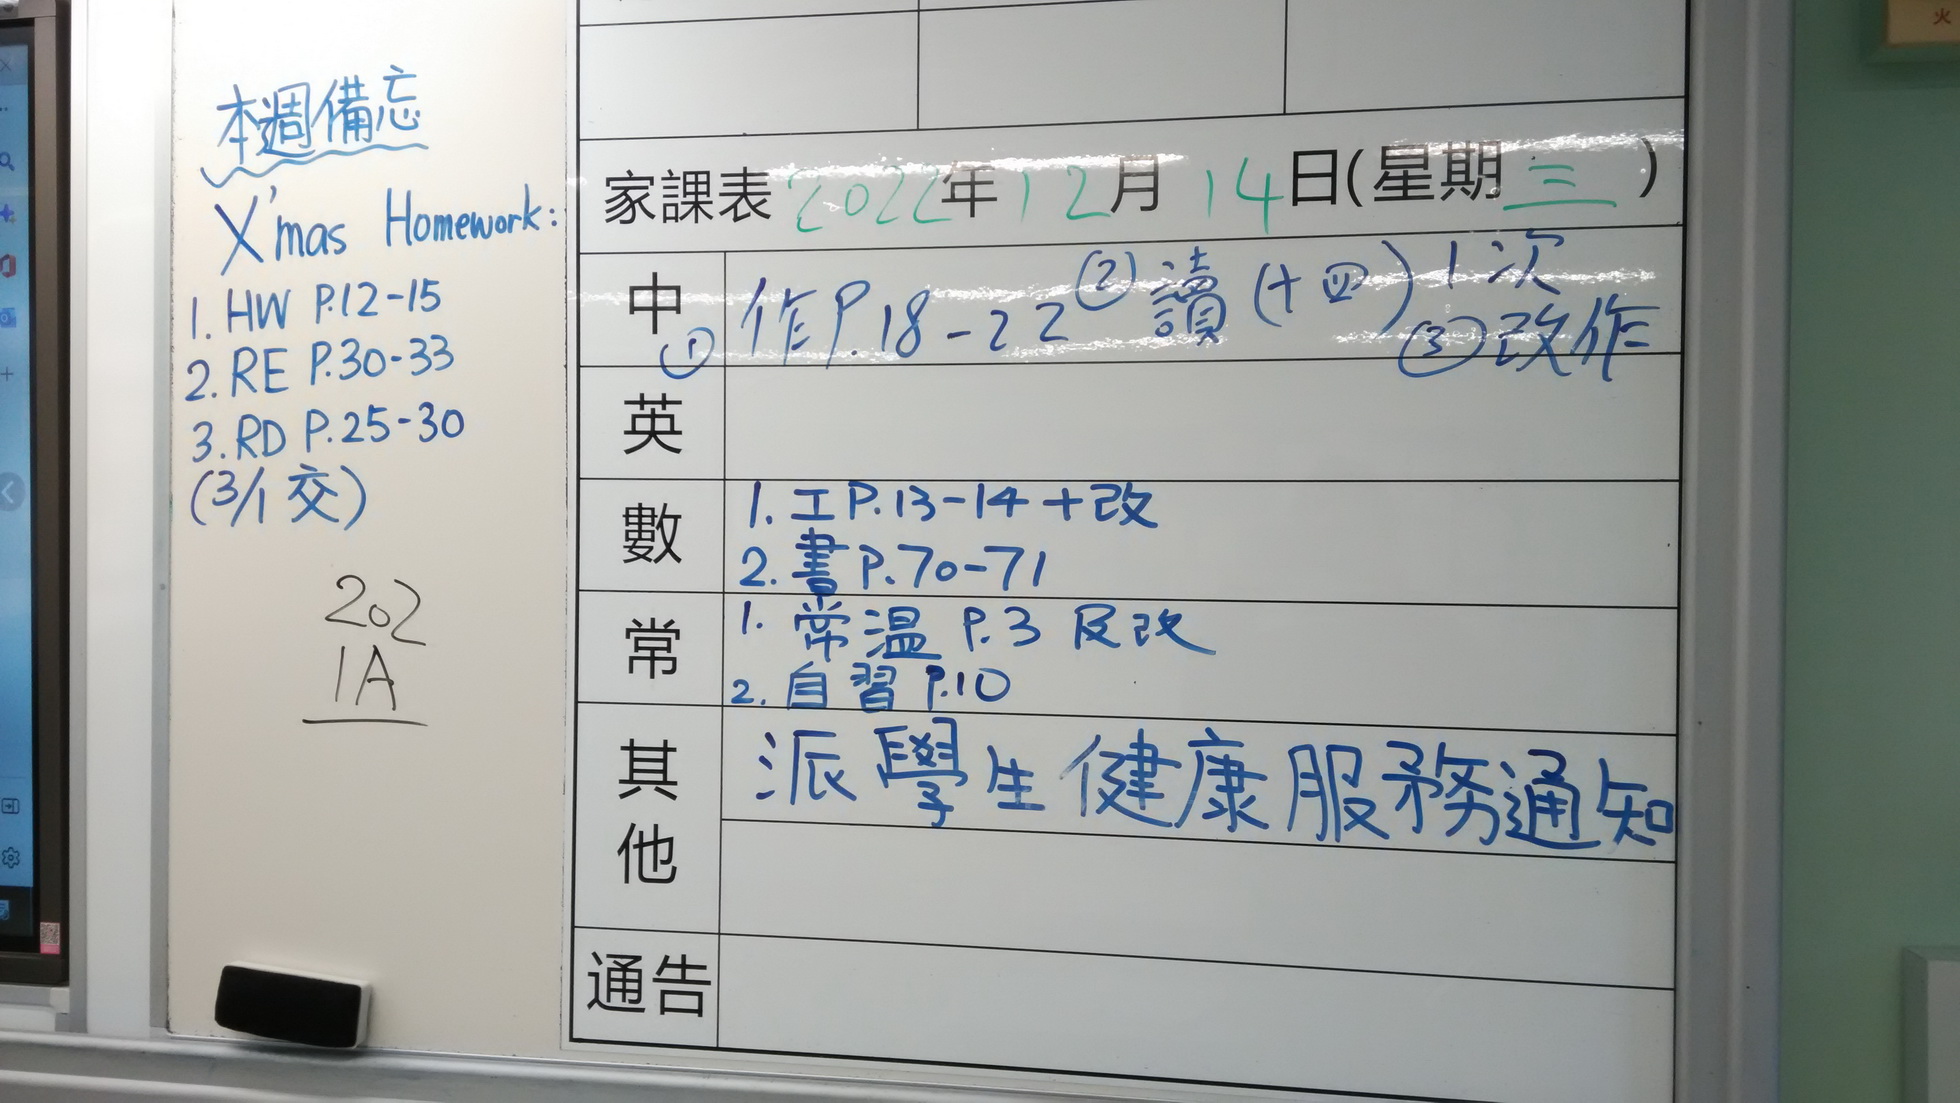 本週備忘
X'mas Homework:
1. HW P.12-15
2. RE P.30-33
3. RD P.25-30
(3/1 交)
202
1A
家課表 2022年12月14日(星期三)
中 ①作P.18-22 ②讀(十四)1次 ③改作
英
數 1. 工P.13-14+改
2. 書P.70-71
常 1. 常温 P.3 及改
2. 自習 P.10
其他 派學生健康服務通知
通告
火